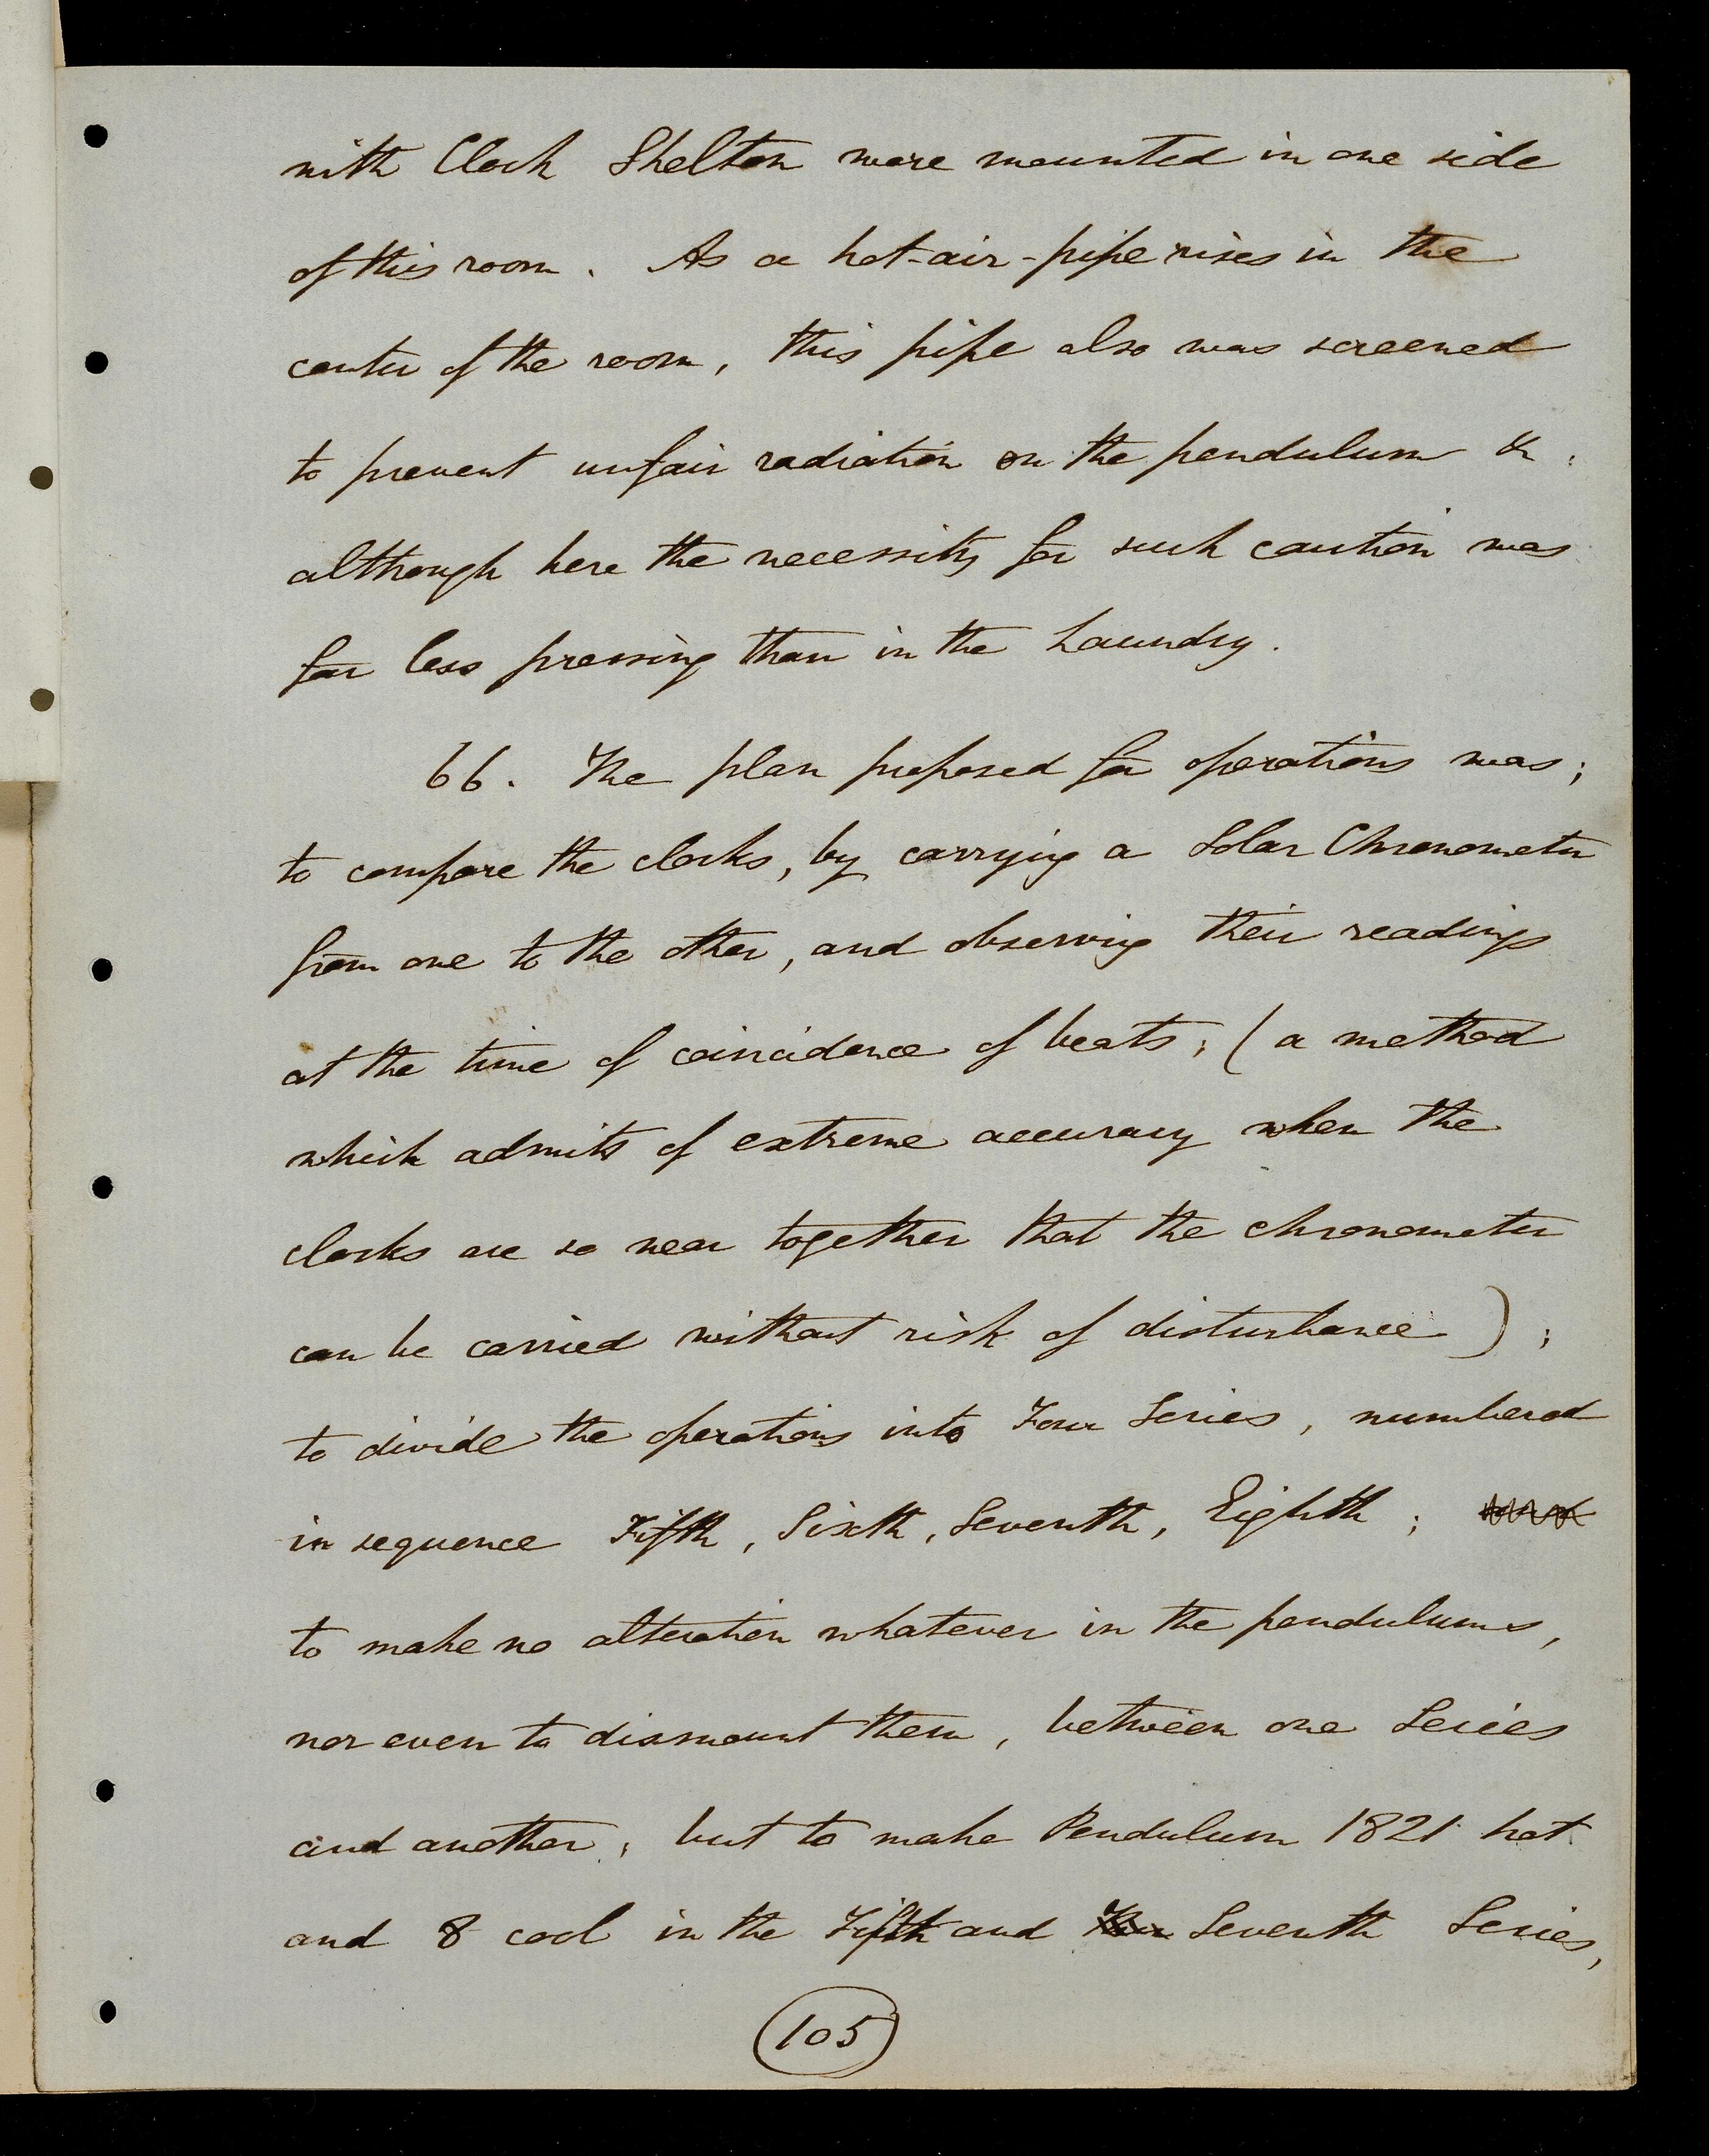 with Clock Shelton were mounted in one side
of this room. As a hot-air-pipe rises in the
center of the room, this pipe also was screened
to prevent unfair radiation on the pendulum &c.
although here the necessity for such caution was
far less pressing than in the Laundry.
66. The plan proposed for operations was;
to compare the clocks, by carrying a Solar Chronometer
from one to the other, and observing their readings
at the time of coincidence of beats; (a method
which admits of extreme accuracy when the
clocks are so near together that the chronometer
can be carried without risk of disturbance);
to divide the operations into Four Series, numbered
in sequence Fifth, Sixth, Seventh, Eighth;
to make no alteration whatever in the pendulums,
nor even to dismount them, between one Series
and another; but to make Pendulum 1821 hot
and 8 cool in the Fifth and Seventh Series,
105